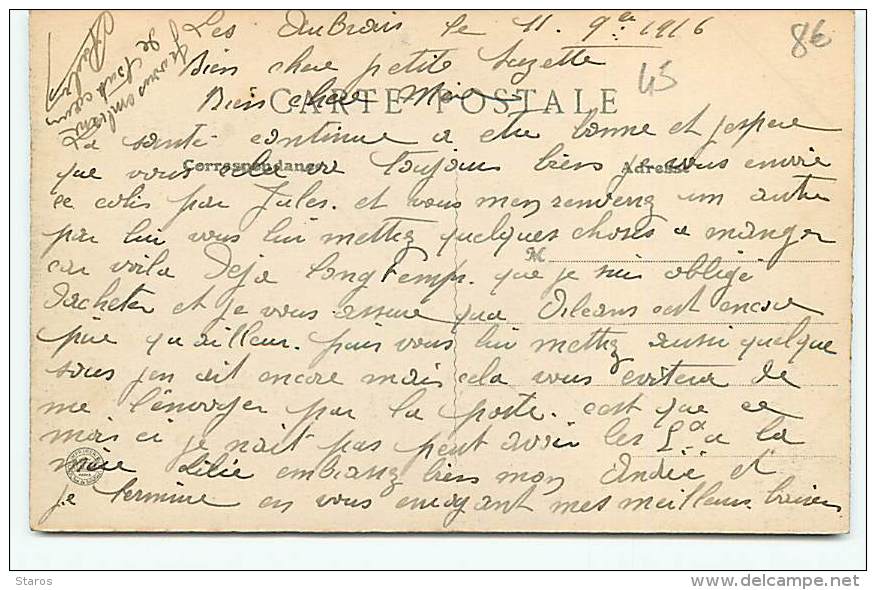 Les Aubrais le 11. 9bre 1916
Bien chere petite Suzette
CARTE POSTALE
Bien chere
La santé continue a etre bonne et jespere
Correspondance
Adresse
que vous toujours bien je vous envoie
ce colis par Jules. et vous men renverez un autre
par lui vous lui mettez quelques choses a manger
M
car voila Deja longtemps que je suis obligé
dacheter et je vous assure que Orleans est encore
pire qu ailleur. puis vous lui mettez aussi quelque
sous jen ait encore mais cela vous eviteras de
me lenvoyer par la poste. cest que ce
mois ci je nait pas peut avoir les a la
embrassez bien mon André et
je termine en vous envoyant mes meilleurs baisers
Je vous embrasse
de tout cœur
86
45
Staros
delcampe.net